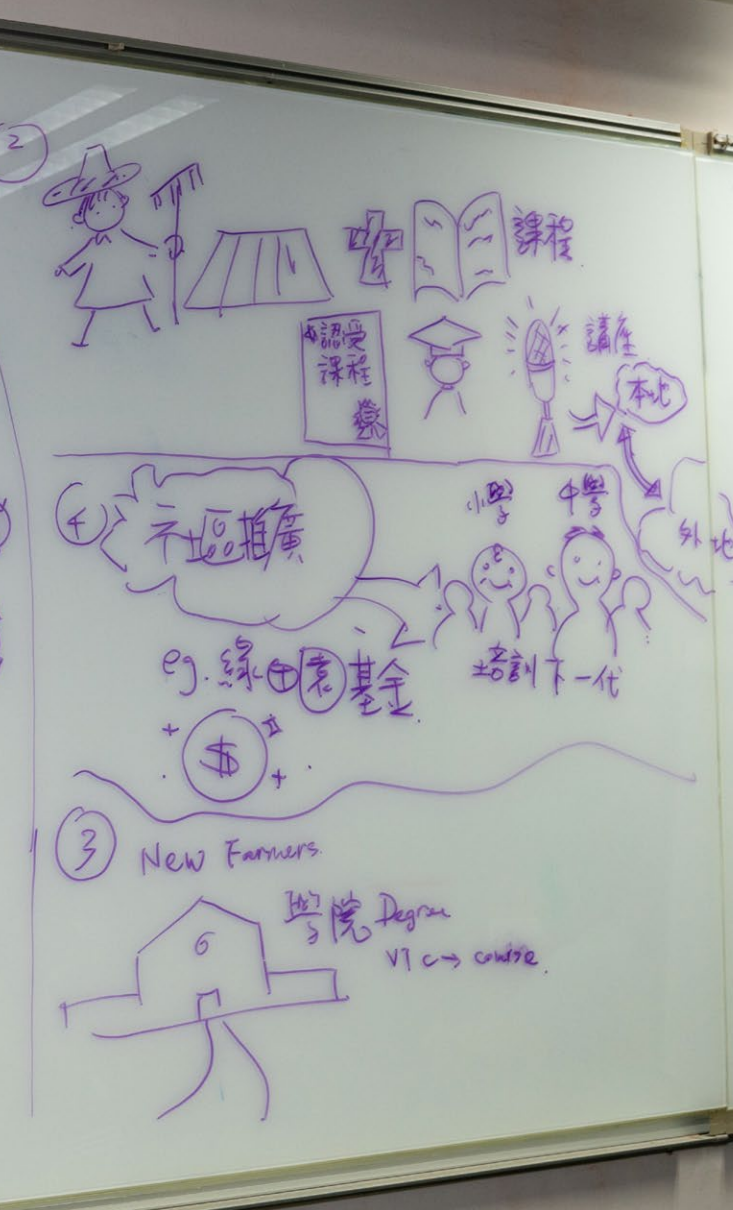 2
課程
認受
課程
講座
本地
外地
4
社區推廣
小學 中學
培訓下一代
eg. 綠田園基金
$
3 New Farmers
學院 Degree
VTC→ course.